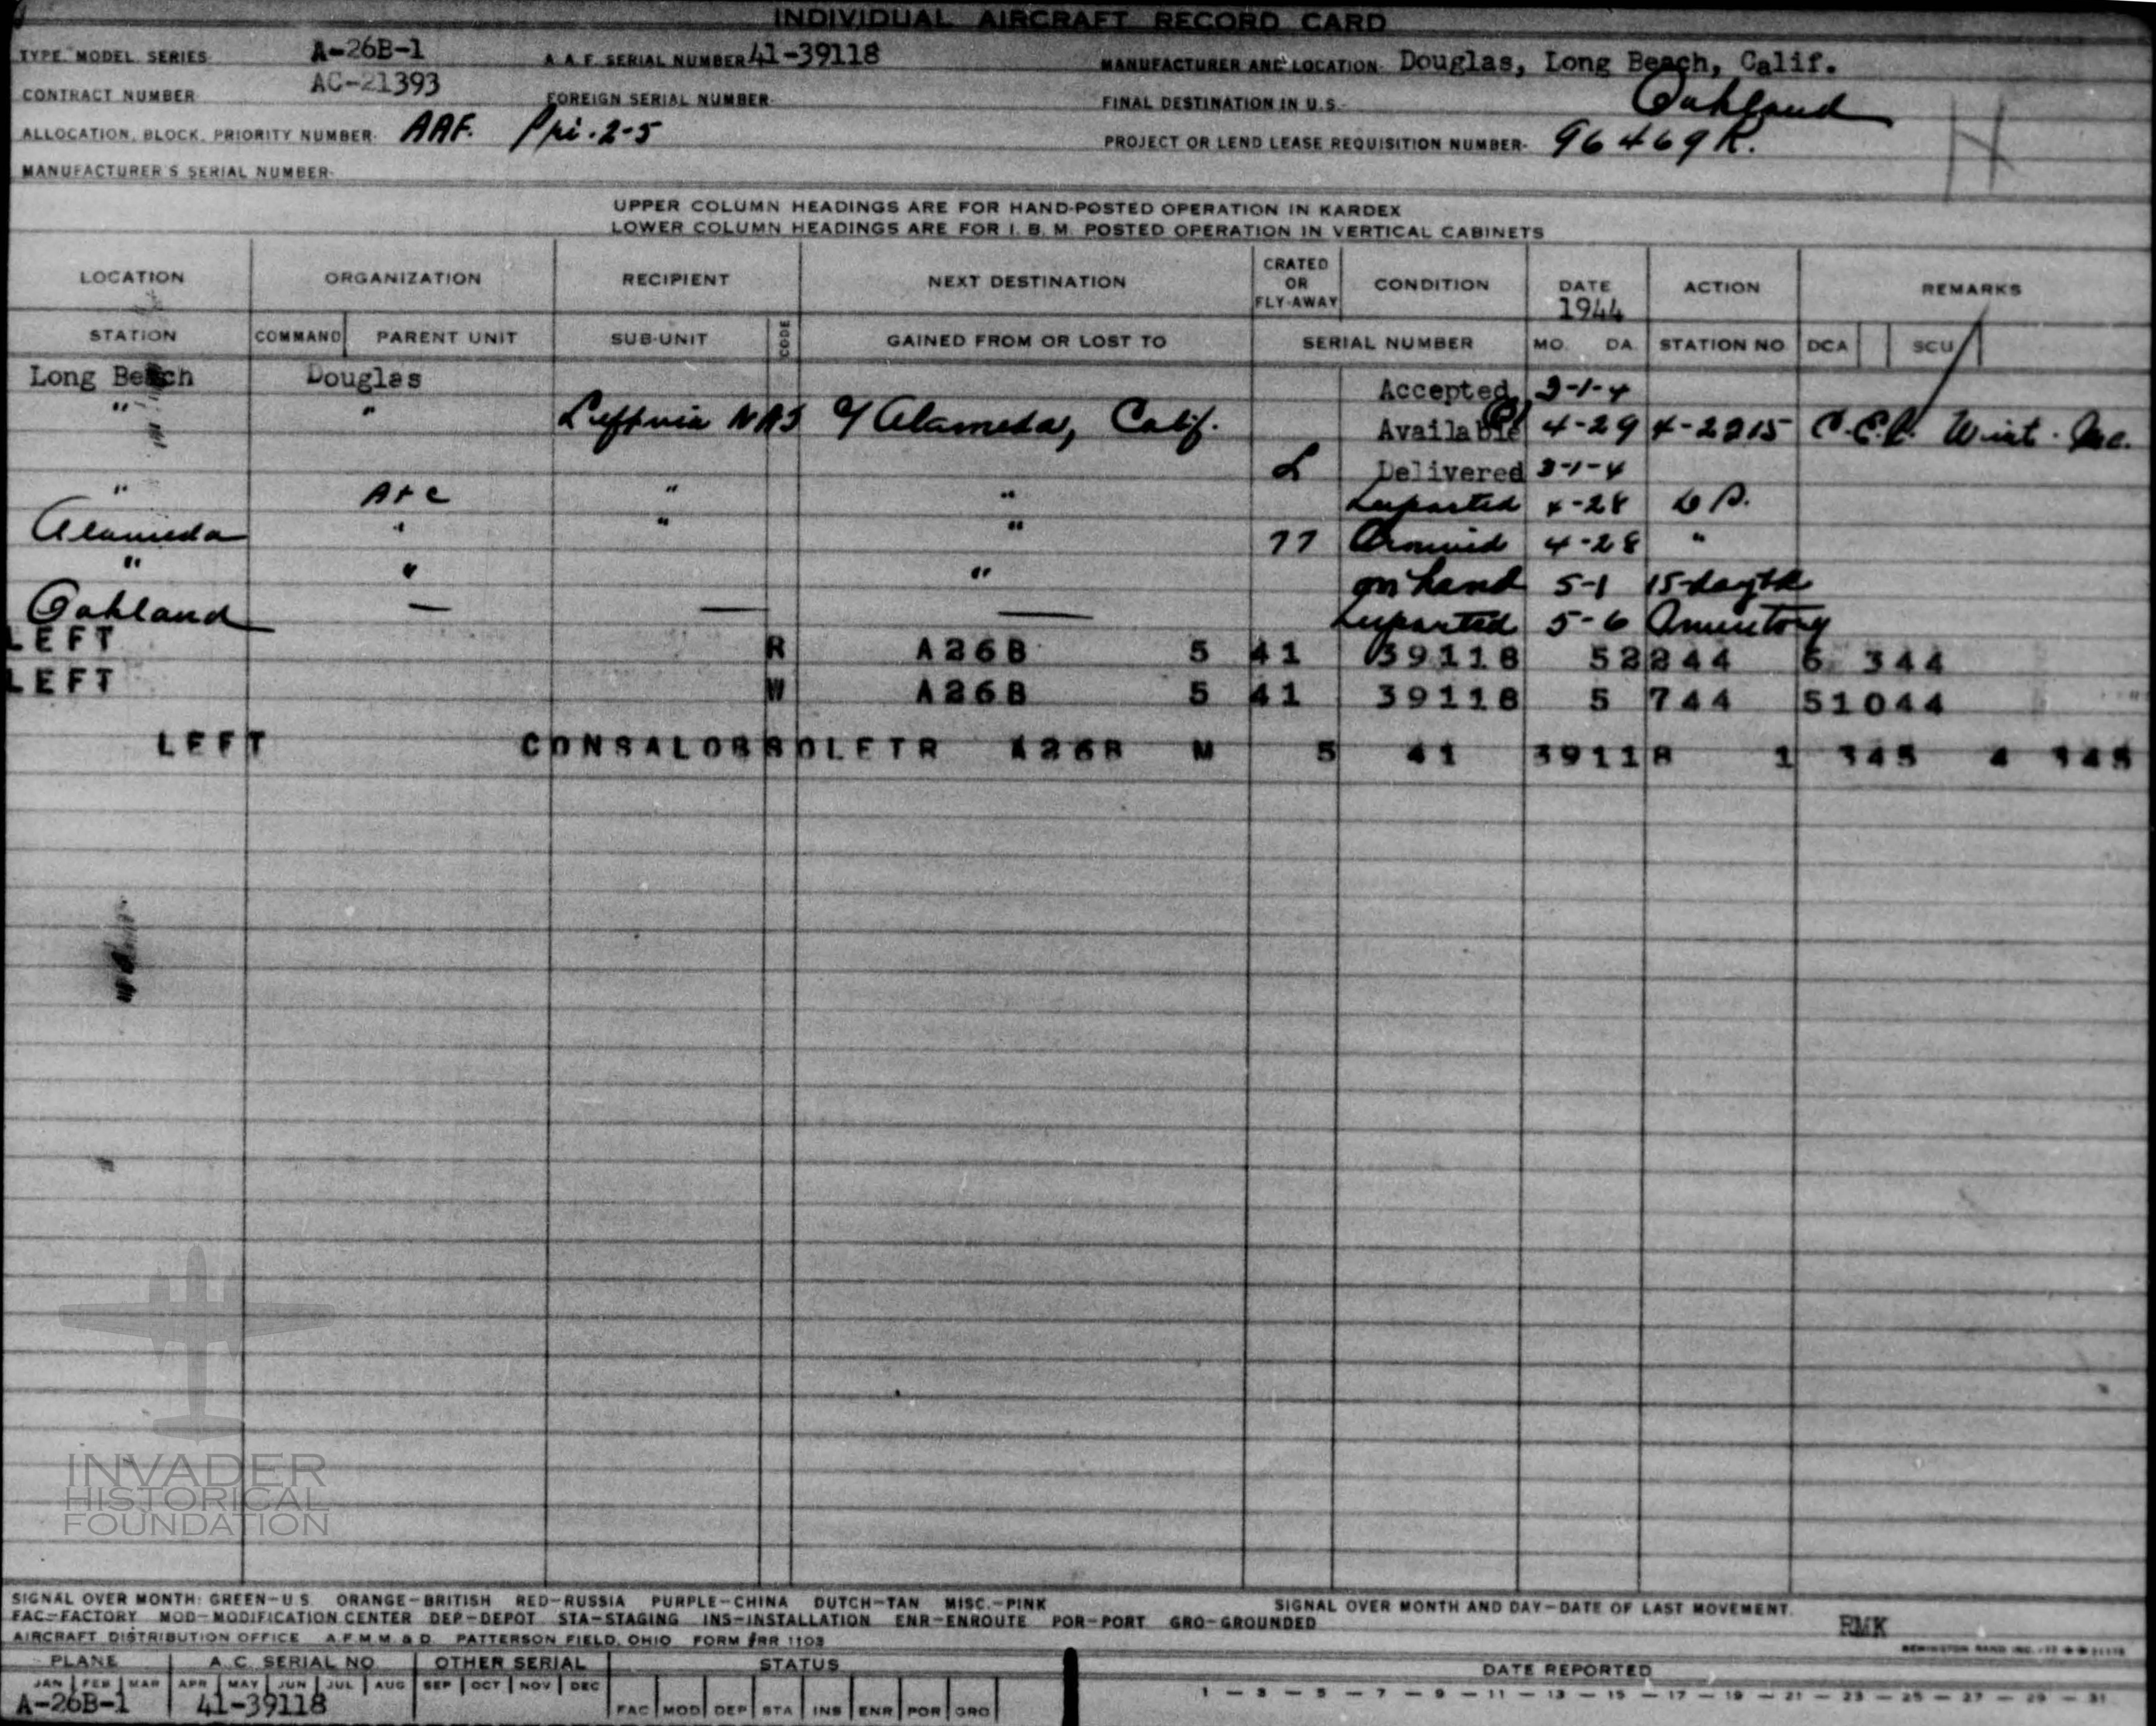 INDIVIDUAL AIRCRAFT RECORD CARD
TYPE MODEL SERIES A-26B-1 A.A.F. SERIAL NUMBER 41-39118 MANUFACTURER AND LOCATION- Douglas, Long Beach, Calif.
CONTRACT NUMBER AC-21393 FOREIGN SERIAL NUMBER- FINAL DESTINATION IN U.S.- Oakland
ALLOCATION, BLOCK, PRIORITY NUMBER- AAF. Pri. 2-5 PROJECT OR LEND LEASE REQUISITION NUMBER- 96469R.
MANUFACTURER'S SERIAL NUMBER-
UPPER COLUMN HEADINGS ARE FOR HAND-POSTED OPERATION IN KARDEX
LOWER COLUMN HEADINGS ARE FOR I. B. M. POSTED OPERATION IN VERTICAL CABINETS
LOCATION ORGANIZATION RECIPIENT NEXT DESTINATION CRATED OR FLY-AWAY CONDITION DATE 1944 ACTION REMARKS
STATION COMMAND PARENT UNIT SUB-UNIT CODE GAINED FROM OR LOST TO SERIAL NUMBER MO. DA. STATION NO DCA SCU
Long Beach Douglas Accepted 3-1-4
" " NAS Alameda, Calif. Available 4-29 4-2215
" " " Delivered 3-1-4
Departed 4-28
Alameda " " " 77 4-28 "
" " " on hand 5-1
Oakland — — — Departed 5-6
LEFT R A26B 5 41 39118 52244 6 344
LEFT W A26B 5 41 39118 5 744 51044
LEFT CONSALOBSOLETR A26B M 5 41 39118 1 345 4 345
INVADER
HISTORICAL
FOUNDATION
SIGNAL OVER MONTH: GREEN-U.S. ORANGE-BRITISH RED-RUSSIA PURPLE-CHINA DUTCH-TAN MISC.-PINK SIGNAL OVER MONTH AND DAY-DATE OF LAST MOVEMENT.
FAC-FACTORY MOD-MODIFICATION CENTER DEP-DEPOT STA-STAGING INS-INSTALLATION ENR-ENROUTE POR-PORT GRO-GROUNDED
RMK
AIRCRAFT DISTRIBUTION OFFICE A.F.M.M. & D. PATTERSON FIELD, OHIO FORM #RR 1103
PLANE A.C. SERIAL NO. OTHER SERIAL STATUS DATE REPORTED
JAN FEB MAR APR MAY JUN JUL AUG SEP OCT NOV DEC
1 - 3 - 5 - 7 - 9 - 11 - 13 - 15 - 17 - 19 - 21 - 23 - 25 - 27 - 29 - 31
A-26B-1 41-39118 FAC MOD DEP STA INS ENR POR GRO